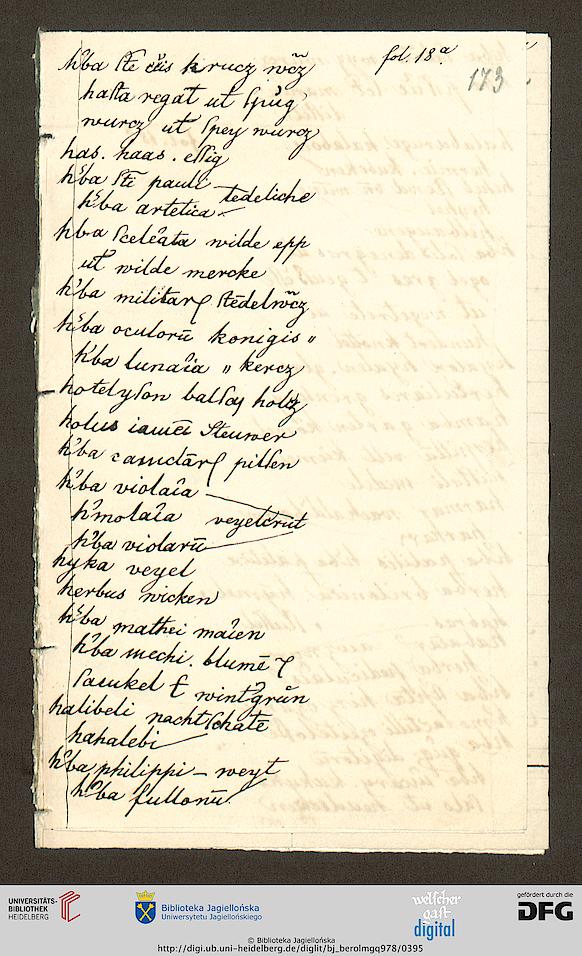 fol. 18ª
173
hʼba sti cris krucz wc̃z
hasta regat ut spug
wurcz ut spey wurcz
has. haas. essig
hʼba sti pauli
tedeliche
hʼba artetica
hʼba sceleata wilde epp
ut wilde mercke
hʼba militarʃ stedelwc̃z
hʼba oculorū konigis „
hʼba lunaia „ kercz
hotelyson balsaʒ holcz
hʼba pilsen
hʼba violaia
hʼmolaia veyelcrut
hʼba violarū
hyka veyel
herbus wicken
hʼba mathei maien
hʼba mechi. blumē
wintʼgrün
halibeli nachtschate
hahalebi
hʼba philippi – weyt
hʼba fullonū
UNIVERSITÄTS-
BIBLIOTHEK
HEIDELBERG
Biblioteka Jagiellońska
Uniwersytetu Jagiellońskiego
welscher
gast
digital
gefördert durch die
DFG
© Biblioteka Jagiellońska
http://digi.ub.uni-heidelberg.de/diglit/bj_berolmgq978/0395